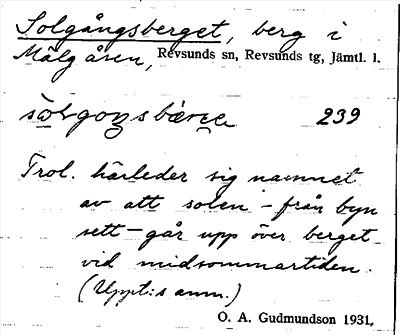 Solgångsberget, berg i
Målgåren, Revsunds sn, Revsunds tg, Jämtl. l.
239
Trol. härleder sig namnet
av att solen - från byn
sett - går upp över berget
vid midsommartiden.
(Uppt:s anm.)
O. A. Gudmundson 1931.